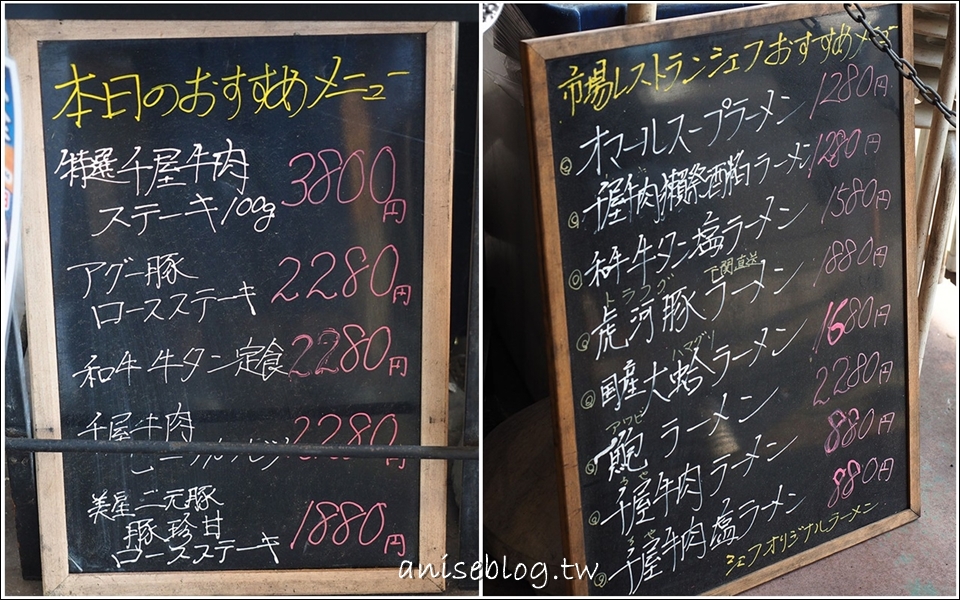 本日のおすすめメニュー
特選千屋牛肉
ステーキ100g 3800円
アグー豚
ロースステーキ 2280円
和牛牛タン定食 2280円
千屋牛肉
2280
美星二元豚
豚珍甘
ロースステーキ 1880円
市場レストランシェフおすすめメニュー
オマールスープラーメン 1280円
千屋牛肉獺祭酒粕ラーメン 1280円
和牛牛タン塩ラーメン 1580円
トラフグ 下関直送
虎河豚ラーメン 1880円
ハマグリ
国産大蛤ラーメン 1680円
アワビ
鮑ラーメン 2280円
千屋牛肉ラーメン 880円
千屋牛肉塩ラーメン 880円
シェフオリジナルラーメン
aniseblog.tw